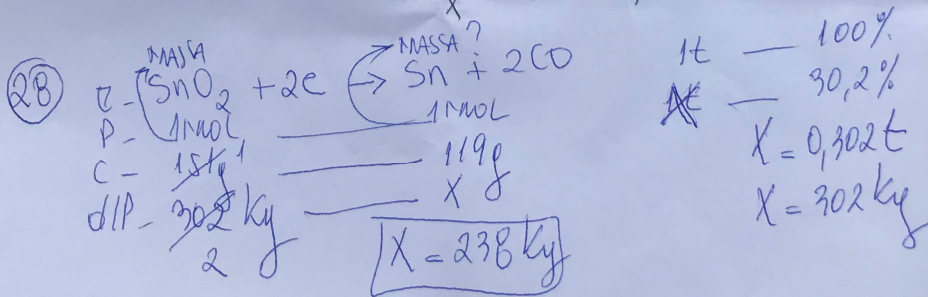 28
MASSA MASSA ?
E - SnO2 + 2C → Sn + 2CO
P - 1 mol — 1 mol
C - 151g 1 — 119g
d/P - 302 Kg — X
2
X = 238 Kg
1t — 100%
— 30,2%
X = 0,302t
X = 302 Kg